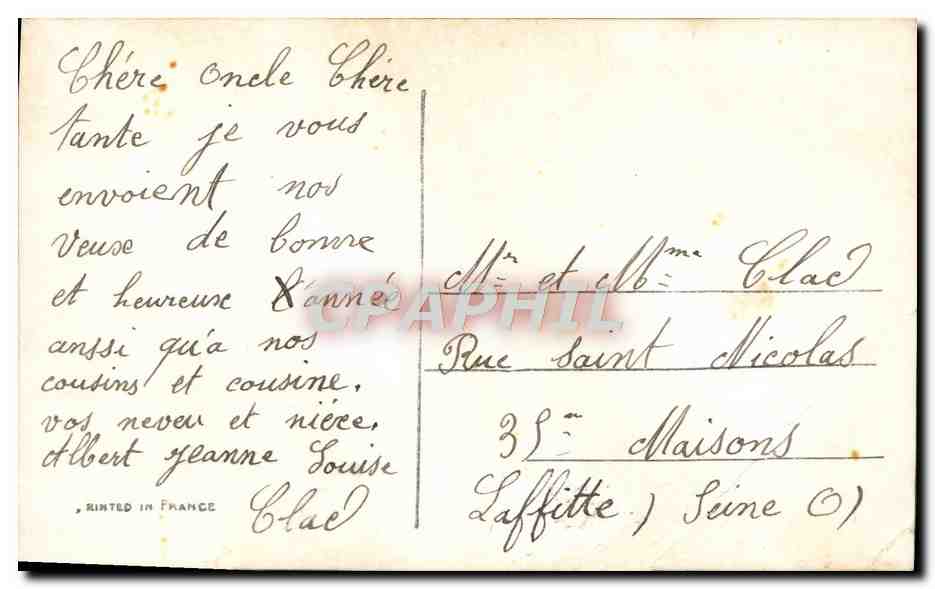 Chére oncle Chére
tante je vous
envoient nos
veuse de bonne
et heureuse l'année
anssi qu'a nos
cousins et cousine.
vos neveu et niéce.
Albert Jeanne Louise
Clad
PRINTED IN FRANCE
Mr et Mme Clad
Rue Saint Nicolas
35 Maisons
Laffitte) Seine O)
CPAPHIL